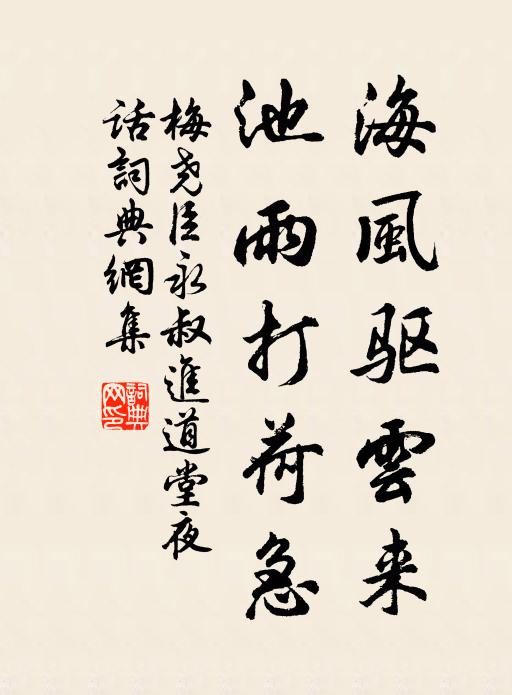 海風驱雲来
池雨打荷急
梅尧臣永叔進道堂夜
话詞典網集
詞典網印